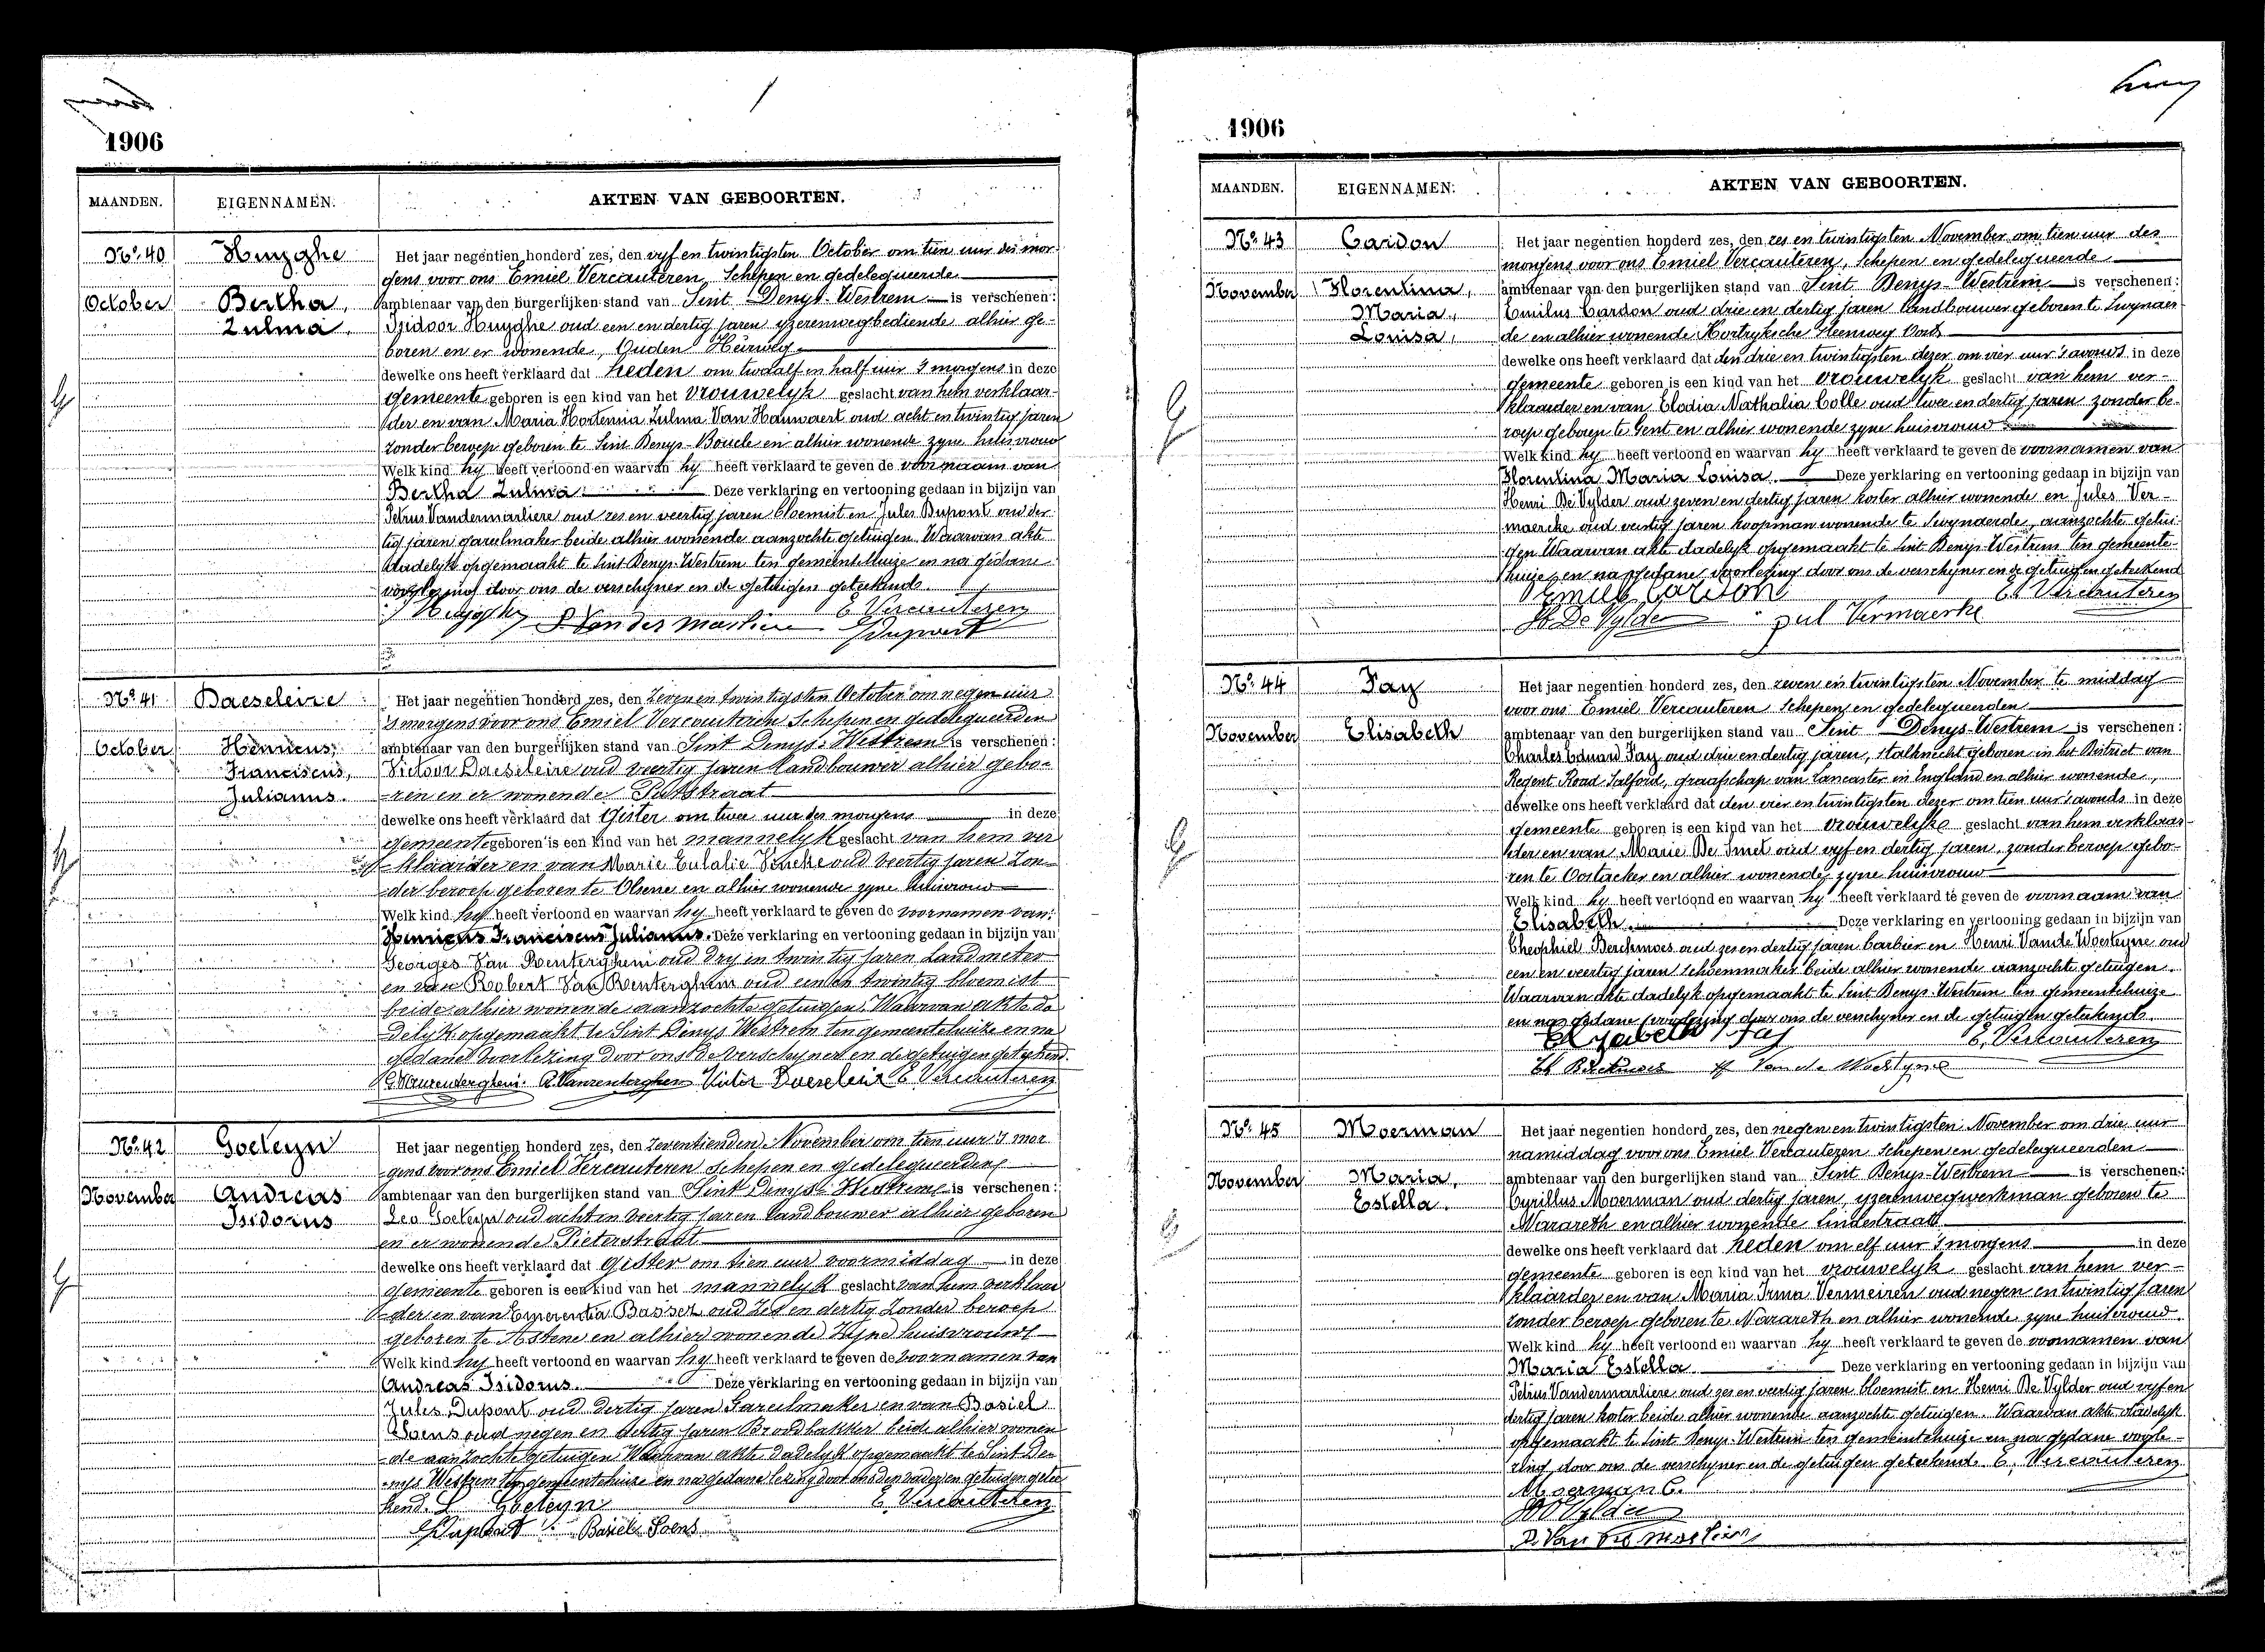 1906
MAANDEN.
EIGENNAMEN.
AKTEN VAN GEBOORTEN.
No. 40
Huyghe
October
Bertha,
Zulma.
Het jaar negentien honderd zes, den vyf en twintigsten October om tien uur des mor-
gens voor ons Emiel Vercauteren, Schepen en gedelegueerde
ambtenaar van den burgerlijken stand van Sint Denys-Westrem is verschenen:
Isidoor Huyghe oud een en dertig jaren yzerenwegbediende alhier ge-
boren en er wonende, Ouden Heirweg
dewelke ons heeft verklaard dat heden om twaalf en half uur 's morgens in deze
gemeente geboren is een kind van het vrouwelyk geslacht van hem verklaar-
der en van Maria Hortensia Zulma Van Hauwaert oud acht en twintig jaren
zonder beroep geboren te Sint Denys-Boucle en alhier wonende zyne huisvrouw
Welk kind hy heeft vertoond en waarvan hy heeft verklaard te geven de voornaam van
Bertha Zulma Deze verklaring en vertooning gedaan in bijzijn van
Petrus Vandermarliere oud zes en veertig jaren bloemist en Jules Dupont oud der-
tig jaren gareelmaker beide alhier wonende aanzochte getuigen. Waarvan akte
dadelyk opgemaakt te Sint Denys-Westrem ten gemeentehuize en na gedane
voorlezing door ons de verschyner en de getuigen geteekend.
I Huyghe P Vandermarliere E Vercauteren
J Dupont
No. 41
Baeseleire
October
Henricus,
Franciscus,
Julianus.
Het jaar negentien honderd zes, den zeven en twintigsten October om negen uur
's morgens voor ons Emiel Vercauteren Schepen en gedelegueerden
ambtenaar van den burgerlijken stand van Sint Denys-Westrem is verschenen:
Victoor Baeseleire oud veertig jaren Landbouwer alhier gebo-
ren en er wonende Putstraat
dewelke ons heeft verklaard dat Gister om twee uur des morgens in deze
gemeente geboren is een kind van het mannelyk geslacht van hem ver
klaarder en van Marie Eulalie Vincke oud veertig jaren Zon-
der beroep geboren te Olsene en alhier wonende zyne huisvrouw
Welk kind hy heeft vertoond en waarvan hy heeft verklaard te geven de voornamen van:
Henricus Franciscus Julianus. Deze verklaring en vertooning gedaan in bijzijn van
Georges Van Renterghem oud dry en twintig jaren Landmeter
en van Robert Van Renterghem oud een en twintig bloemist
beide alhier wonende aanzochte getuigen. Waarvan akte da
delyk opgemaakt te Sint Denys Westrem ten gemeentehuize en na
gedane voorlezing door ons de verschyner en de getuigen geteekend.
G. Vanrenterghem. R. Vanrenterghem Victor Baeseleire E Vercauteren
No. 42
Goeteyn
November
Andreas
Isidorus
Het jaar negentien honderd zes, den zeventienden November om tien uur 's mor
gens voor ons Emiel Vercauteren Schepen en gedelegueerden
ambtenaar van den burgerlijken stand van Sint Denys-Westrem is verschenen:
Leo Goeteyn oud acht en veertig jaren landbouwer alhier geboren
en er wonende Pieterstraat
dewelke ons heeft verklaard dat gister om tien uur voormiddag in deze
gemeente geboren is een kind van het mannelyk geslacht van hem verklaar
der en van Emerentia Basset oud zes en dertig zonder beroep
geboren te Astene en alhier wonende zyne huisvrouw
Welk kind hy heeft vertoond en waarvan hy heeft verklaard te geven de voornamen van
Andreas Isidorus. Deze verklaring en vertooning gedaan in bijzijn van
Jules Dupont oud dertig jaren Gareelmaker en van Basiel
Soens oud negen en dertig jaren Broodbakker beide alhier wonen
de aanzochte getuigen Waarvan akte dadelyk opgemaakt te Sint De-
nys Westrem ten gemeentehuize en na gedane lezing door ons den vader en getuigen getee
kend. L Goeteyn E. Vercauteren
J Dupont Basiel Soens
1906
MAANDEN.
EIGENNAMEN.
AKTEN VAN GEBOORTEN.
No. 43
Cardon
November
Florentina,
Maria,
Louisa,
Het jaar negentien honderd zes, den zes en twintigsten November om tien uur des
morgens voor ons Emiel Vercauteren, Schepen en gedelegueerde
ambtenaar van den burgerlijken stand van Sint Denys-Westrem is verschenen:
Emilus Cardon oud drie en dertig jaren landbouwer geboren te Zwynaer-
de en alhier wonende Kortryksche Steenweg Oost
dewelke ons heeft verklaard dat den drie en twintigsten dezer om vier uur 's avonds in deze
gemeente geboren is een kind van het vrouwelyk geslacht van hem ver-
klaarder en van Elodia Nathalia Colle oud twee en dertig jaren zonder be-
roep geboren te Gent en alhier wonende zyne huisvrouw
Welk kind hy heeft vertoond en waarvan hy heeft verklaard te geven de voornamen van
Florentina Maria Louisa. Deze verklaring en vertooning gedaan in bijzijn van
Henri De Vylder oud zeven en dertig jaren koster alhier wonende en Jules Ver-
maercke oud veertig jaren koopman wonende te Zwynaerde, aanzochte getui-
gen Waarvan akte dadelyk opgemaakt te Sint Denys-Westrem ten gemeente-
huize en na gedane voorlezing door ons de verschyner en de getuigen geteekend
Emiel Cardon E. Vercauteren
H De Vylder Jul Vermaerke
No. 44
Fay
November
Elisabeth
Het jaar negentien honderd zes, den zeven en twintigsten November te middag
voor ons Emiel Vercauteren Schepen en gedelegueerden
ambtenaar van den burgerlijken stand van Sint Denys-Westrem is verschenen:
Charles Eduard Fay oud drie en dertig jaren, stalknecht geboren in het District van
Regent Road Salford, graafschap van Lancaster in England en alhier wonende,
dewelke ons heeft verklaard dat den vier en twintigsten dezer om tien uur 's avonds in deze
gemeente geboren is een kind van het vrouwelyke geslacht van hem verklaar-
der en van Marie De Smet oud vyf en dertig jaren, zonder beroep gebo-
ren te Oostacker en alhier wonende, zyne huisvrouw
Welk kind hy heeft vertoond en waarvan hy heeft verklaard te geven de voornaam van
Elisabeth. Deze verklaring en vertooning gedaan in bijzijn van
Theophiel Berckmoes oud zes en dertig jaren barbier en Henri Vande Woesteyne oud
een en veertig jaren Schoenmaker beide alhier wonende aanzochte getuigen.
Waarvan akte dadelyk opgemaakt te Sint Denys-Westrem ten gemeentehuize
en na gedane voorlezing door ons de verschyner en de getuigen geteekend.
Elyzabeth Fay E. Vercauteren
Th Berckmoes H Van de Woestyne
No. 45
Moerman
November
Maria,
Estella.
Het jaar negentien honderd zes, den negen en twintigsten November om drie uur
namiddag voor ons Emiel Vercauteren Schepen en gedelegueerden
ambtenaar van den burgerlijken stand van Sint Denys-Westrem is verschenen:
Cyrillus Moerman oud dertig jaren, yzerenwegwerkman geboren te
Nazareth en alhier wonende Lindestraat
dewelke ons heeft verklaard dat heden om elf uur 's morgens in deze
gemeente geboren is een kind van het vrouwelyk geslacht van hem ver-
klaarder en van Maria Irma Vermeiren oud negen en twintig jaren
zonder beroep geboren te Nazareth en alhier wonende zyne huisvrouw.
Welk kind hy heeft vertoond en waarvan hy heeft verklaard te geven de voornamen van
Maria Estella Deze verklaring en vertooning gedaan in bijzijn van
Petrus Vandermarliere oud zes en veertig jaren bloemist en Henri De Vylder oud vyf en
dertig jaren koster beide alhier wonende aanzochte getuigen. Waarvan akte dadelyk
opgemaakt te Sint Denys-Westrem ten gemeentehuize en na gedane voorle-
zing door ons de verschyner en de getuigen geteekend. E. Vercauteren
Moerman C.
H D Vylder
P. Van der marliere